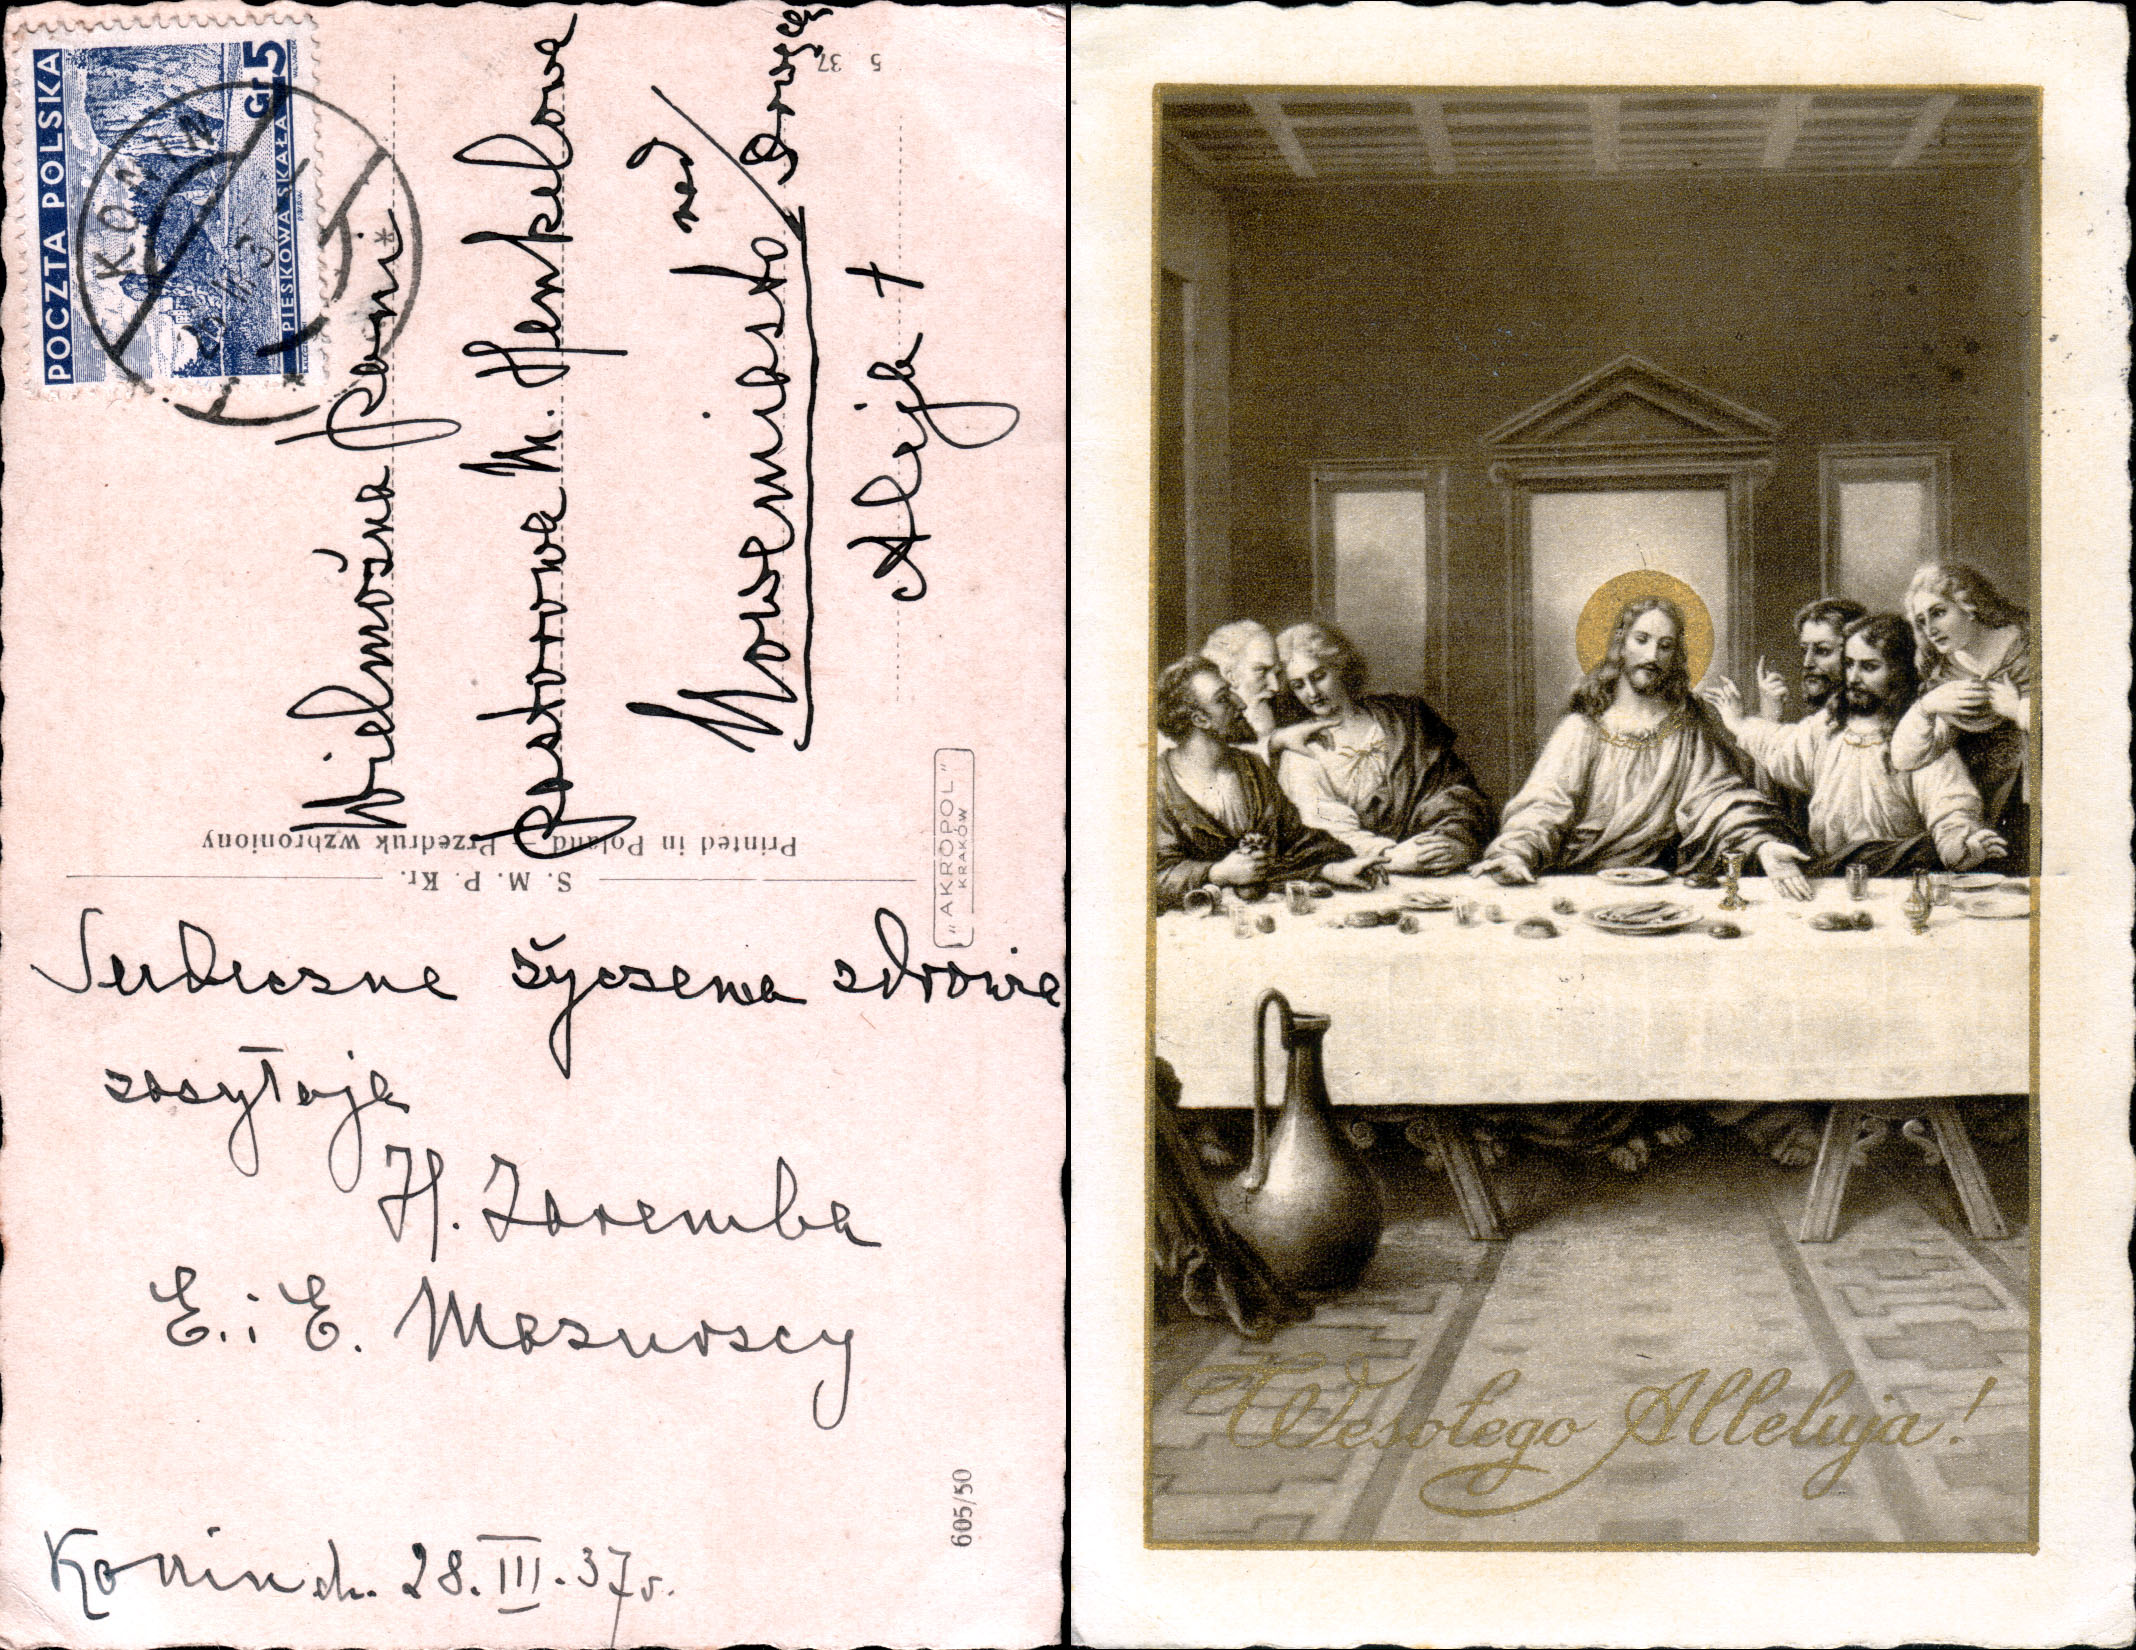 POCZTA POLSKA
Gr 5
PIESKOWA SKAŁA
KONIN
Wielmożna Pani
Pastorowa M. Henkelowa
Nowemiasto nad
Aleja +
5 37
Printed in Poland - Przedruk wzbroniony
S. M. P. Kr.
"AKROPOL"
KRAKÓW
Serdeczne życzenia zdrowia
zasyłają
H. Zaremba
E. i E. Mazuroscy
Konin d. 28.III.37r.
605/50
Wesołego Alleluja!